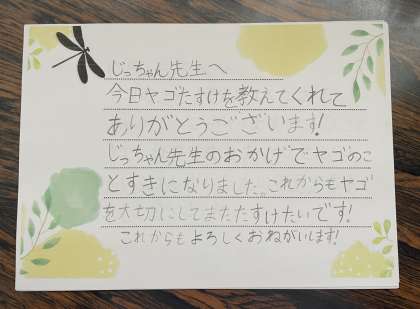 じっちゃん先生へ
今日ヤゴたすけを教えてくれて
ありがとうございます!
じっちゃん先生のおかげでヤゴのこ
とすきになりました。これからもヤゴ
を大切にしてまたたすけたいです!
これからもよろしくおねがいします!